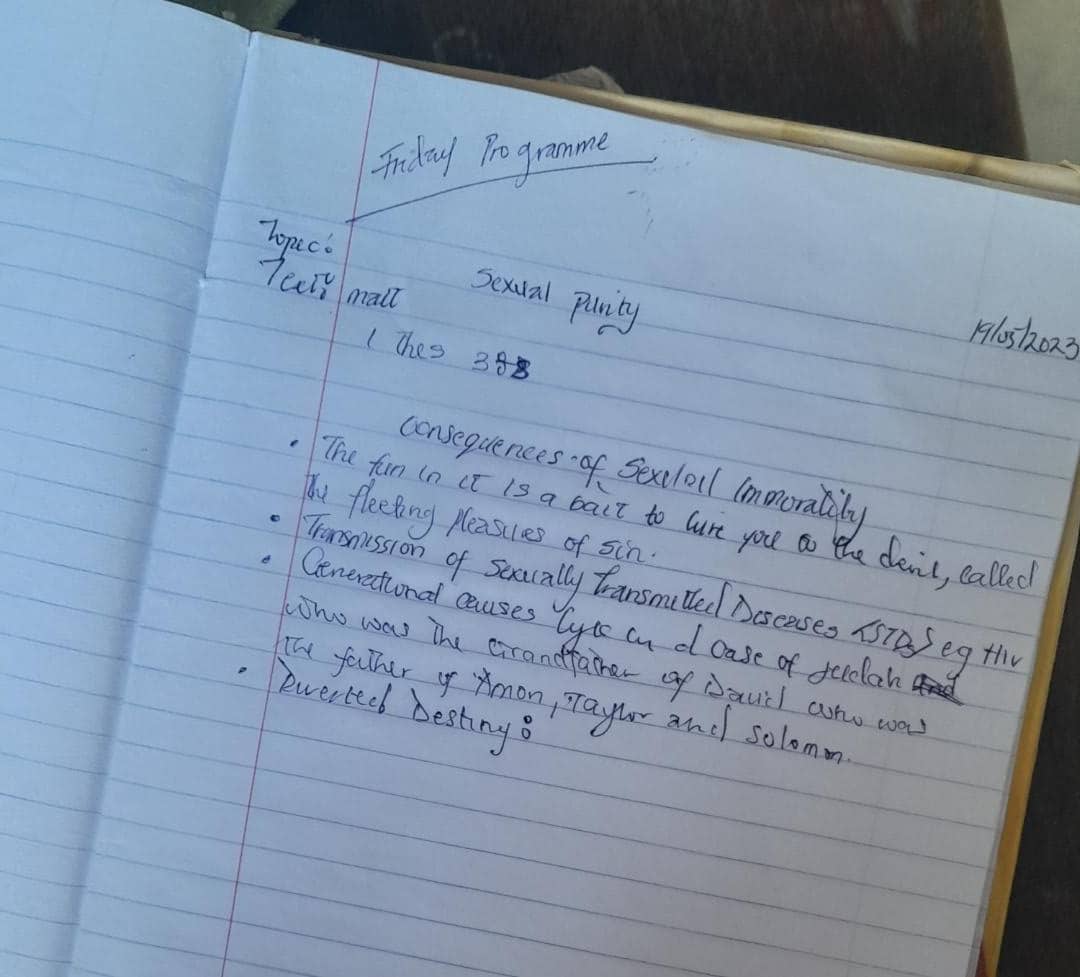 Friday Programme
Topic:
Sexual Purity
19/05/2023
Text: matt
1 Thes
Consequences of Sexual Immorality
• The fun in it is a bait to lure you to the devil, called
the fleeting pleasures of sin.
• Transmission of Sexually Transmitted Diseases (STDs) eg Hiv
• Generational causes like in d case of Judah
who was the Grandfather of David who was
the father of Amon, Taylor and Solomon.
• Diverted Destiny: